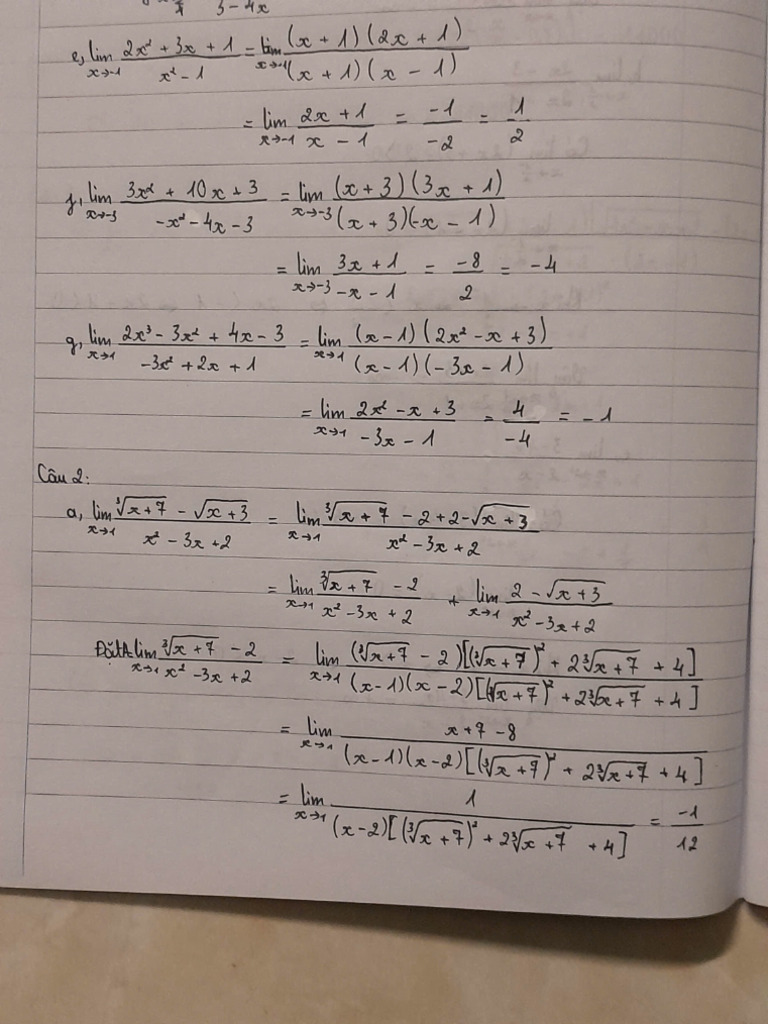 3 - 4x
e, lim x→-1 (2x² + 3x + 1)/(x² - 1) = lim x→-1 ((x + 1)(2x + 1))/((x + 1)(x - 1))
= lim x→-1 (2x + 1)/(x - 1) = (-1)/(-2) = 1/2
f, lim x→-3 (3x² + 10x + 3)/(-x² - 4x - 3) = lim x→-3 ((x + 3)(3x + 1))/((x + 3)(-x - 1))
= lim x→-3 (3x + 1)/(-x - 1) = (-8)/2 = -4
g, lim x→1 (2x³ - 3x² + 4x - 3)/(-3x² + 2x + 1) = lim x→1 ((x - 1)(2x² - x + 3))/((x - 1)(-3x - 1))
= lim x→1 (2x² - x + 3)/(-3x - 1) = 4/(-4) = -1
Câu 2:
a, lim x→1 (∛(x+7) - √(x+3))/(x² - 3x + 2) = lim x→1 (∛(x+7) - 2 + 2 - √(x+3))/(x² - 3x + 2)
= lim x→1 (∛(x+7) - 2)/(x² - 3x + 2) + lim x→1 (2 - √(x+3))/(x² - 3x + 2)
Đặt A = lim x→1 (∛(x+7) - 2)/(x² - 3x + 2) = lim x→1 ((∛(x+7) - 2)[(∛(x+7))² + 2∛(x+7) + 4])/((x-1)(x-2)[(∛(x+7))² + 2∛(x+7) + 4])
= lim x→1 (x + 7 - 8)/((x-1)(x-2)[(∛(x+7))² + 2∛(x+7) + 4])
= lim x→1 1/((x-2)[(∛(x+7))² + 2∛(x+7) + 4]) = -1/12